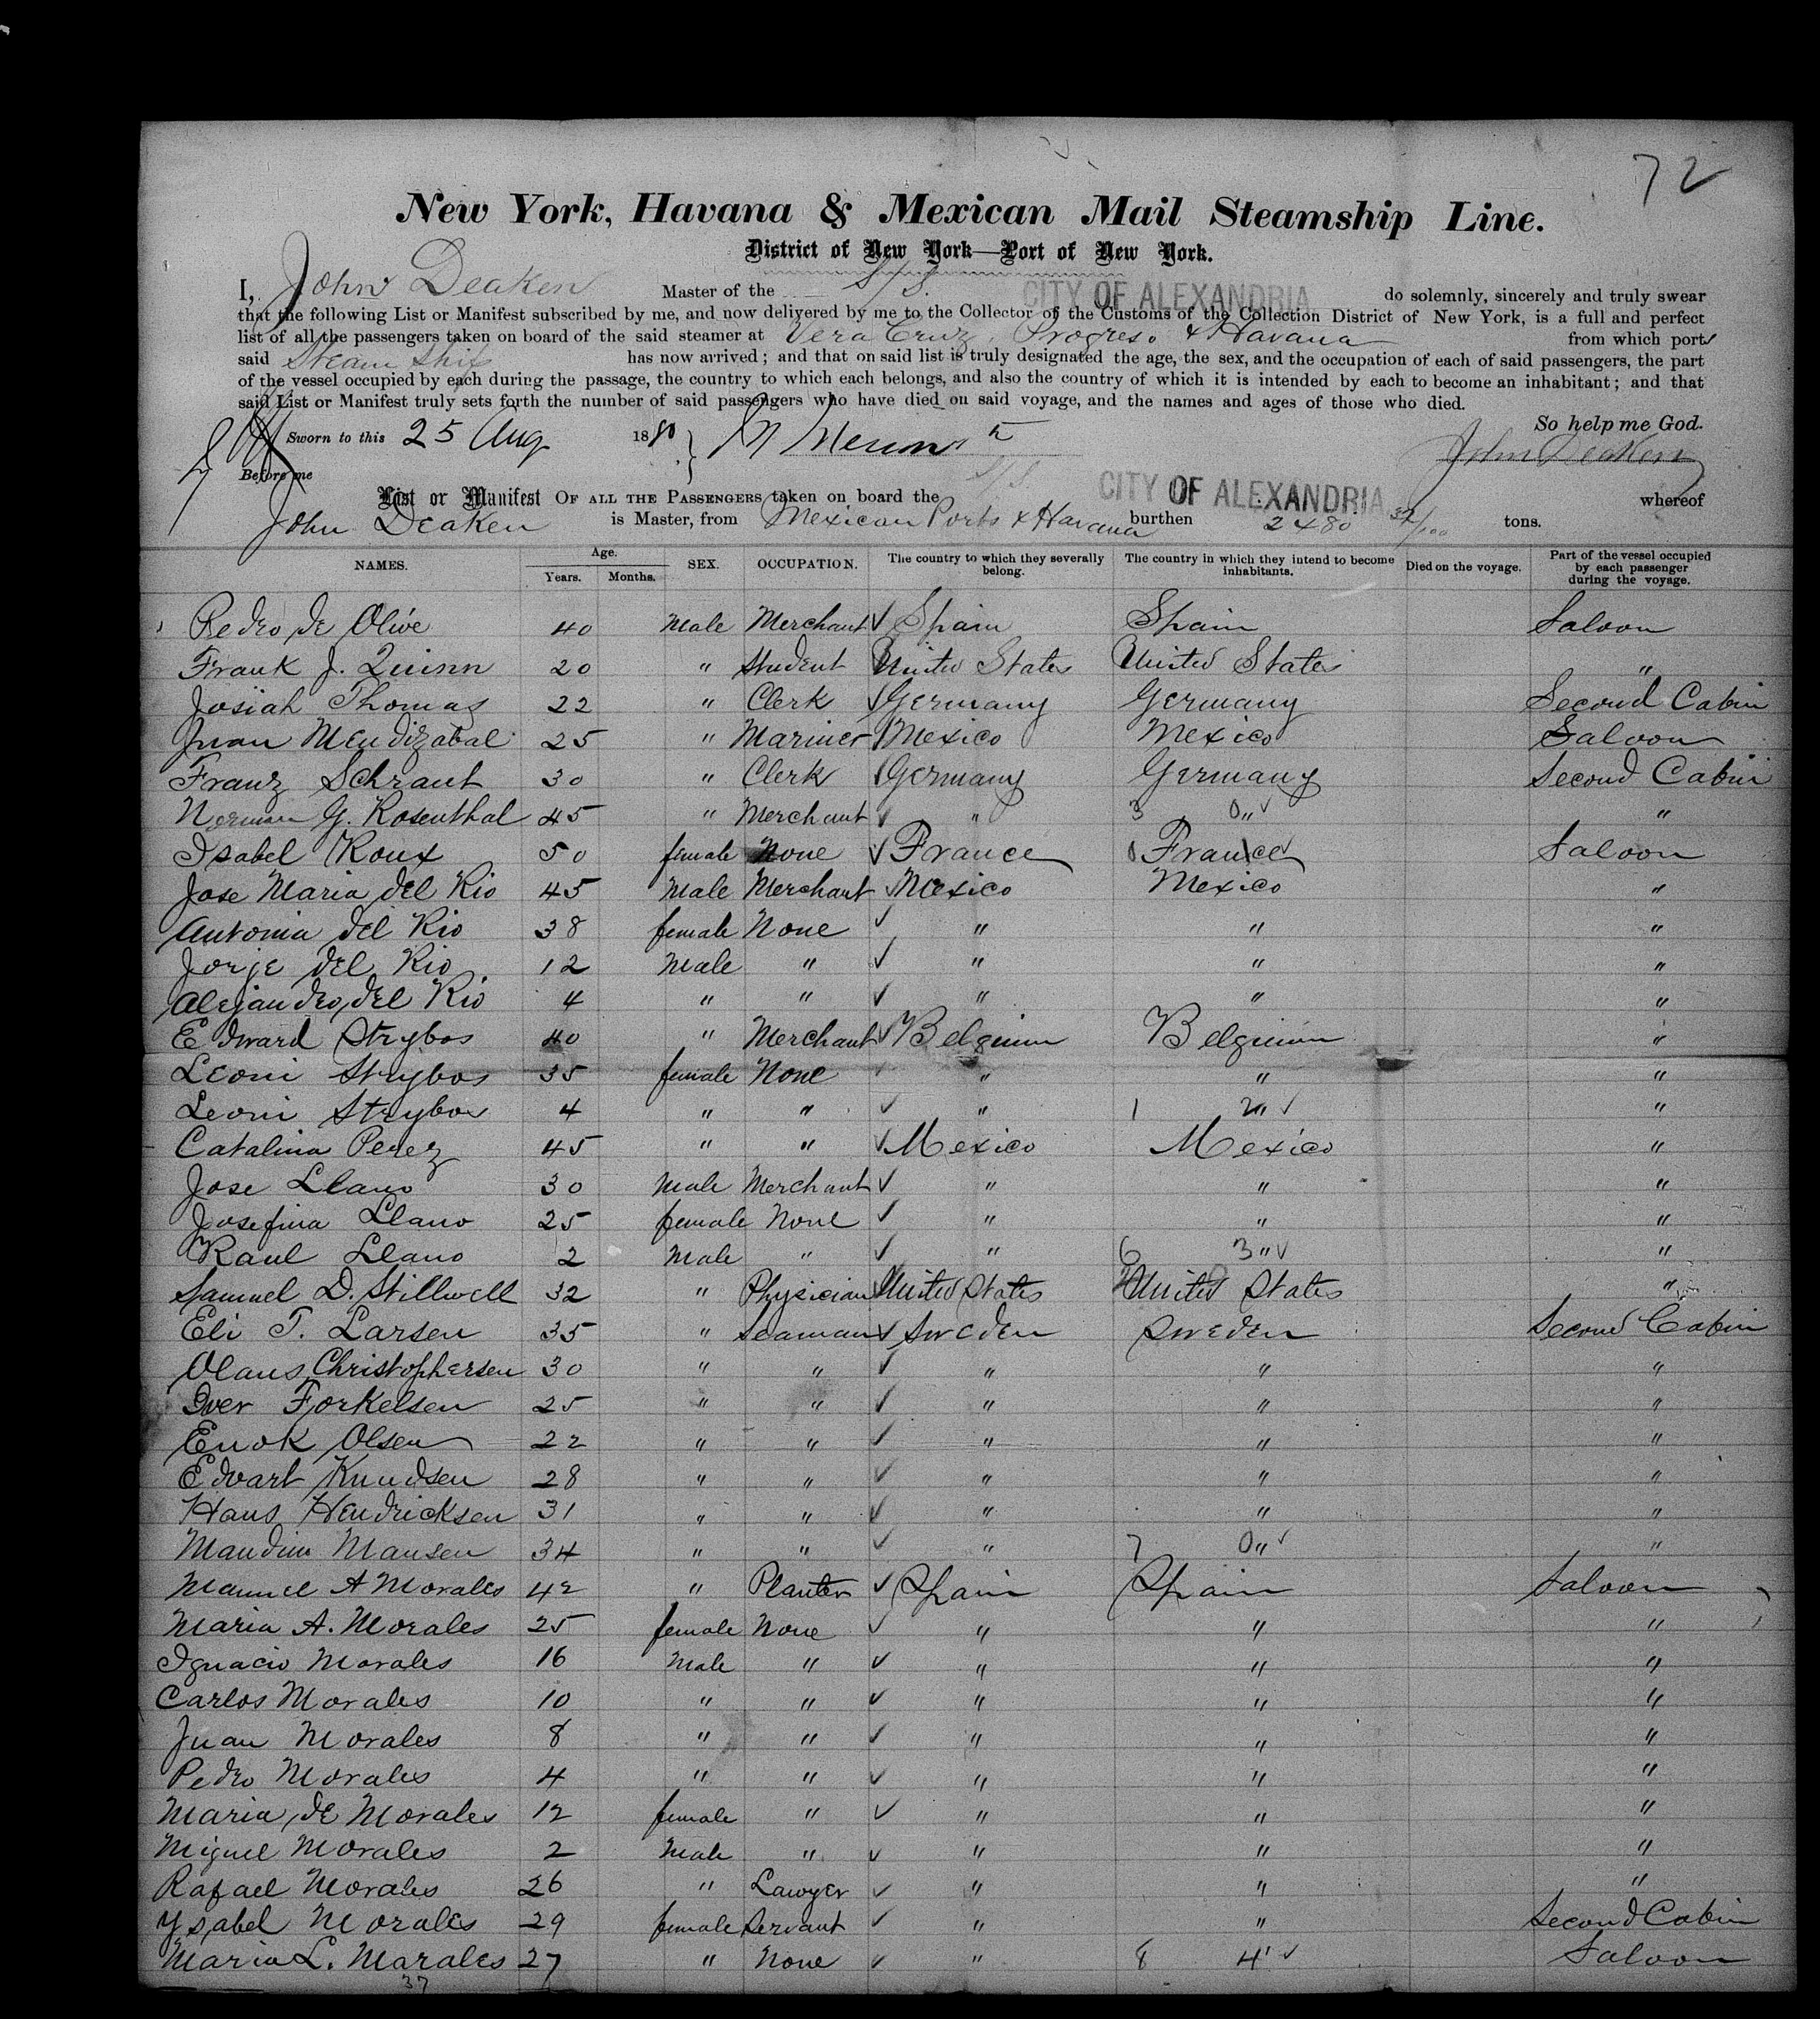 72
New York, Havana & Mexican Mail Steamship Line.
District of New York—Port of New York.
I, John Deaken Master of the S/S. CITY OF ALEXANDRIA do solemnly, sincerely and truly swear
that the following List or Manifest subscribed by me, and now delivered by me to the Collector of the Customs of the Collection District of New York, is a full and perfect
list of all the passengers taken on board of the said steamer at Vera Cruz, Progreso & Havana from which ports
said Steam Ship has now arrived; and that on said list is truly designated the age, the sex, and the occupation of each of said passengers, the part
of the vessel occupied by each during the passage, the country to which each belongs, and also the country of which it is intended by each to become an inhabitant; and that
said List or Manifest truly sets forth the number of said passengers who have died on said voyage, and the names and ages of those who died.
So help me God.
Sworn to this 25 Aug 1880
John Deaken
Before me
List or Manifest OF ALL THE PASSENGERS taken on board the S/S. CITY OF ALEXANDRIA whereof
John Deaken is Master, from Mexican Ports & Havana burthen 2480 32/100 tons.
NAMES. Age. Years. Months. SEX. OCCUPATION. The country to which they severally belong. The country in which they intend to become inhabitants. Died on the voyage. Part of the vessel occupied by each passenger during the voyage.
Pedro de Olive 40 Male Merchant Spain Spain Saloon
Frank J. Quinn 20 " Student United States United States "
Josiah Thomas 22 " Clerk Germany Germany Second Cabin
Juan Mendizabal 25 " Mariner Mexico Mexico Saloon
Franz Schraut 30 " Clerk Germany Germany Second Cabin
Norman G. Rosenthal 45 " Merchant " 3 0 " "
Isabel Roux 50 female None France France Saloon
Jose Maria del Rio 45 Male Merchant Mexico Mexico "
Antonia del Rio 38 female None " " "
Jorje del Rio 12 Male " " " "
Alejandro del Rio 4 " " " " "
Edward Strybos 40 " Merchant Belgium Belgium "
Leoni Strybos 35 female None " " "
Leoni Strybos 4 " " " 1 2 " "
Catalina Perez 45 " " Mexico Mexico "
Jose Llano 30 Male Merchant " " "
Josefina Llano 25 female None " " "
Raul Llano 2 Male " " 6 3 " "
Samuel D. Stillwell 32 " Physician United States United States "
Eli T. Larsen 35 " Seaman Sweden Sweden Second Cabin
Olaus Christophersen 30 " " " " "
Iver Forkelsen 25 " " " " "
Enok Olsen 22 " " " " "
Edvart Knudsen 28 " " " " "
Hans Hendricksen 31 " " " " "
Mandiu Mansen 34 " " " 7 0 " "
Manuel A Morales 42 " Planter Spain Spain Saloon
Maria A. Morales 25 female None " " "
Ignacio Morales 16 Male " " " "
Carlos Morales 10 " " " " "
Juan Morales 8 " " " " "
Pedro Morales 4 " " " " "
Maria de Morales 12 female " " " "
Miguel Morales 2 Male " " " "
Rafael Morales 26 " Lawyer " " "
Ysabel Morales 29 female Servant " " Second Cabin
Maria L. Marales 27 " None " 8 4 " Saloon
37